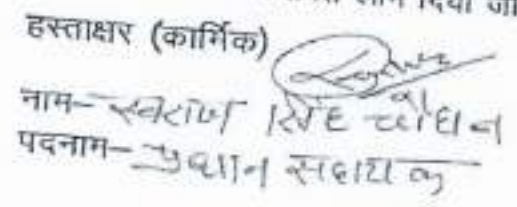 दिया जा
हस्ताक्षर (कार्मिक)
नाम- स्वराज सिंह चौहान
पदनाम- प्रधान सहायक